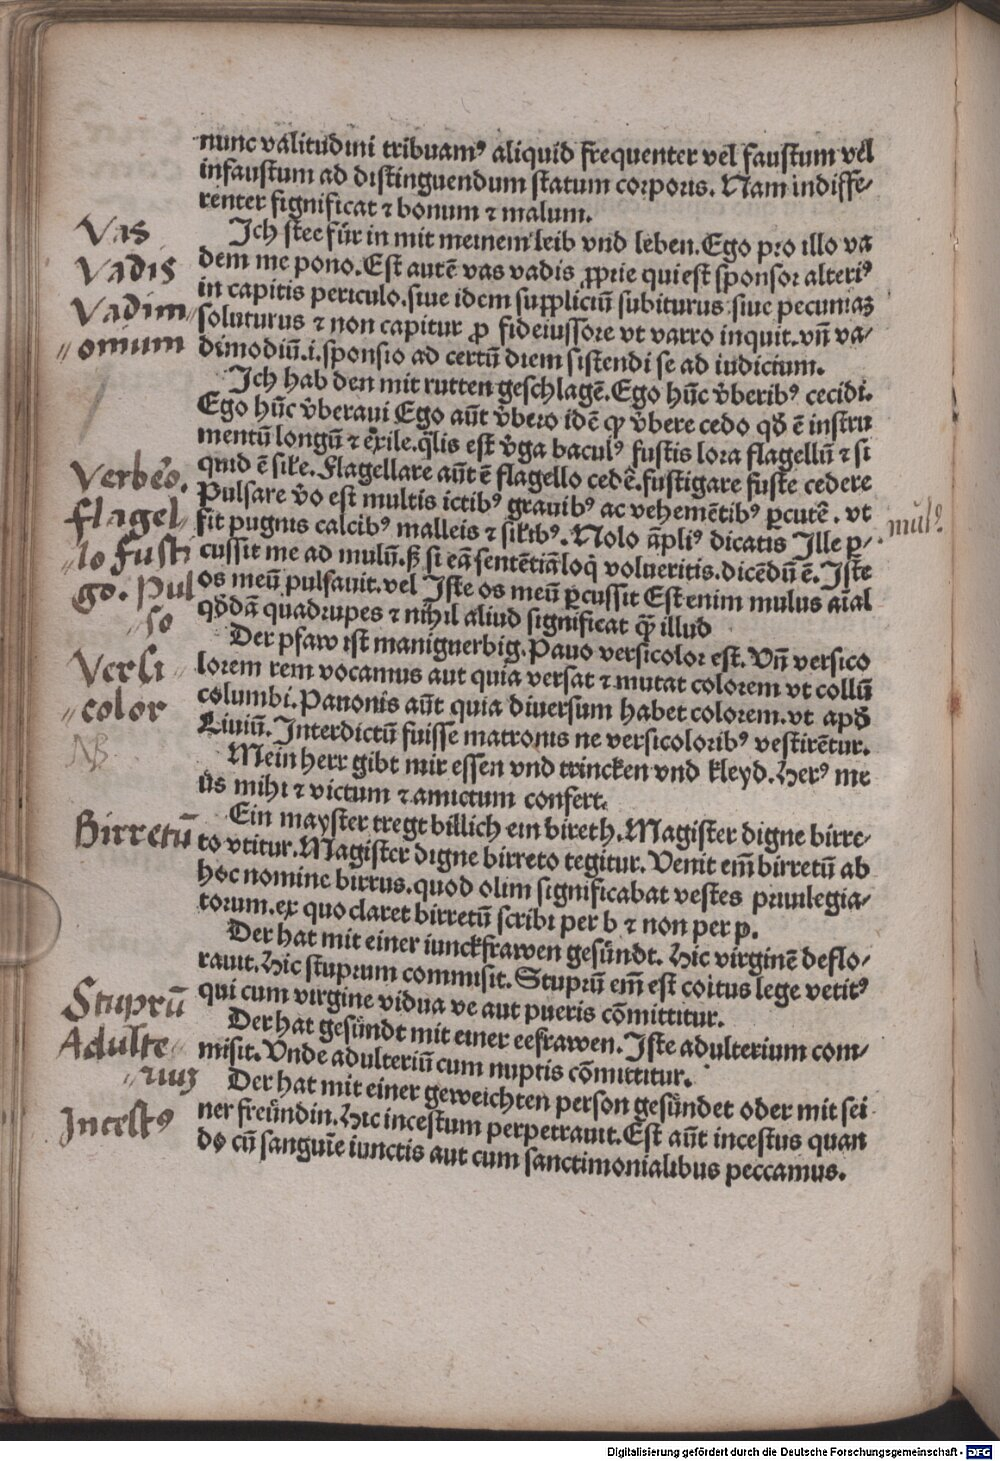 nunc valitudini tribuamꝰ aliquid frequenter vel faustum vel
infaustum ad distinguendum statum corporis. Nam indiffe⸗
renter significat ⁊ bonum ⁊ malum.
Ich stee für in mit meinem leib vnd leben. Ego pro illo va
dem me pono. Est autē vas vadis ꝓprie qui est sponsor alteriꝰ
in capitis periculo. siue idem suppliciū subiturus siue pecuniaꝫ
soluturus ⁊ non capitur ꝓ fideiussore vt varro inquit. vñ va⸗
dimodiū .i. sponsio ad certū diem sistendi se ad iudicium.
Ich hab den mit rutten geschlagē. Ego hūc v̓beribꝰ cecidi.
Ego hūc v̓beraui Ego aūt v̓bero idē ꝙ v̓bere cedo qđ ē instru
mentū longū ⁊ exile. q̄lis est v̓ga baculꝰ fustis lora flagellū ⁊ si
quid ē sile. Flagellare aūt ē flagello cedē. fustigare fuste cedere
Pulsare v̓o est multis ictibꝰ grauibꝰ ac vehemētibꝰ ꝑcutē. vt
fit pugnis calcibꝰ malleis ⁊ silibꝰ. Nolo āpliꝰ dicatis Ille ꝑ⸗
cussit me ad mulū. sꝫ si eā sentētiā loq̄ volueritis. dicēdū ē. Iste
os meū pulsauit. vel Iste os meū ꝑcussit Est enim mulus aīal
qđdā quadrupes ⁊ nihil aliud significat q̄ illud
Der pfaw ist maniguerbig. Pauo versicolor est. Vñ versico
lorem rem vocamus aut quia versat ⁊ mutat colorem vt collū
columbi. Panonis aūt quia diuersum habet colorem. vt apđ
Liuiū. Interdictū fuisse matronis ne versicoloribꝰ vestirētur.
Mein herr gibt mir essen vnd trincken vnd kleyd. Herꝰ me
ūs mihi ⁊ victum ⁊ amictum confert.
Ein mayster tregt billich ein bireth. Magister digne birre⸗
to vtitur. Magister digne birreto tegitur. Venit em̄ birretū ab
hoc nomine birrus. quod olim significabat vestes priuilegia⸗
torum. ex quo claret birretū scribi per b ⁊ non per p.
Der hat mit einer iunckfrawen gesündt. Hic virginē deflo⸗
rauit. Hic stuprum commisit. Stuprū em̄ est coitus lege vetitꝰ
qui cum virgine vidua ve aut pueris cōmittitur.
Der hat gesündt mit einer eefrawen. Iste adulterium com⸗
misit. Vnde adulteriū cum nuptis cōmittitur.
Der hat mit einer geweichten person gesündet oder mit sei
ner freündin. Hic incestum perpetrauit. Est aūt incestus quan
do cū sanguīe iunctis aut cum sanctimonialibus peccamus.
Vas
Vadis
Vadim⸗
⸗omium
Verbeo.
flagel⸗
⸗lo fusti
go. Pul
⸗so
mulꝰ
Versi⸗
⸗color
NB
Birretū
Stuprū
Adulte⸗
⸗riuꝫ
Incestꝰ
Digitalisierung gefördert durch die Deutsche Forschungsgemeinschaft - DFG